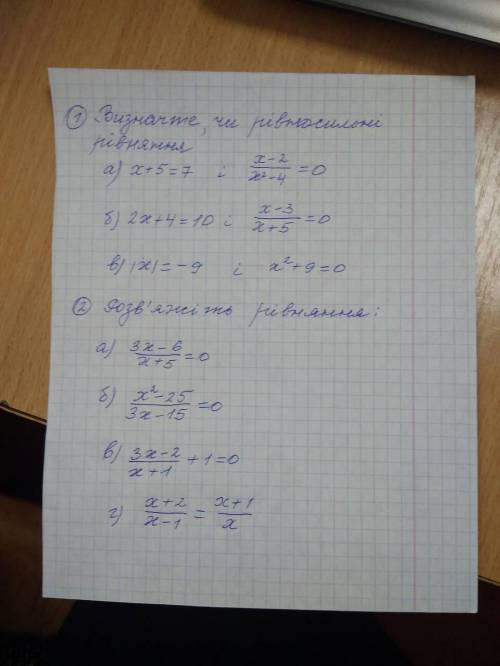 ① Визначте, чи рівносильні
рівняння
а) x+5=7 і (x-2)/(x²-4)=0
б) 2x+4=10 і (x-3)/(x+5)=0
в) |x|=-9 і x²+9=0
② Розв'яжіть рівняння:
а) (3x-6)/(x+5)=0
б) (x²-25)/(3x-15)=0
в) (3x-2)/(x+1)+1=0
г) (x+2)/(x-1)=(x+1)/x